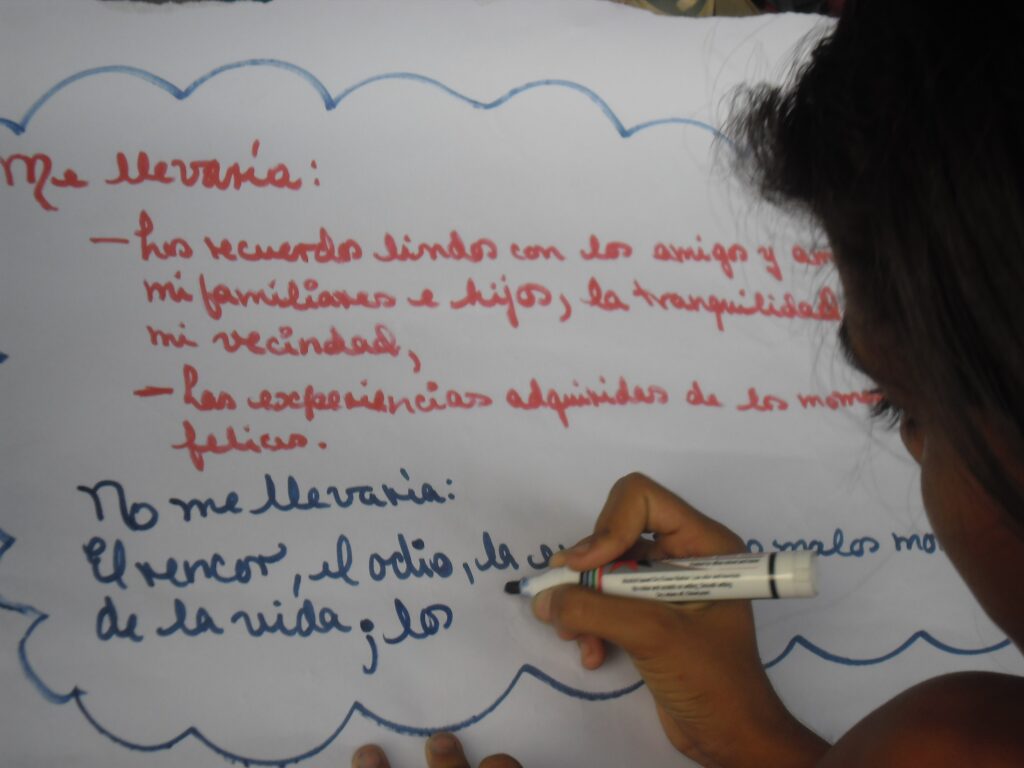 Me llevaría:
- Los recuerdos lindos con los amigos y am
mi familiares e hijos, la tranquilidad
mi vecindad,
- Las experiencias adquiridas de los mome
felices.
No me llevaría:
El rencor, el odio, la malos mo
de la vida; los